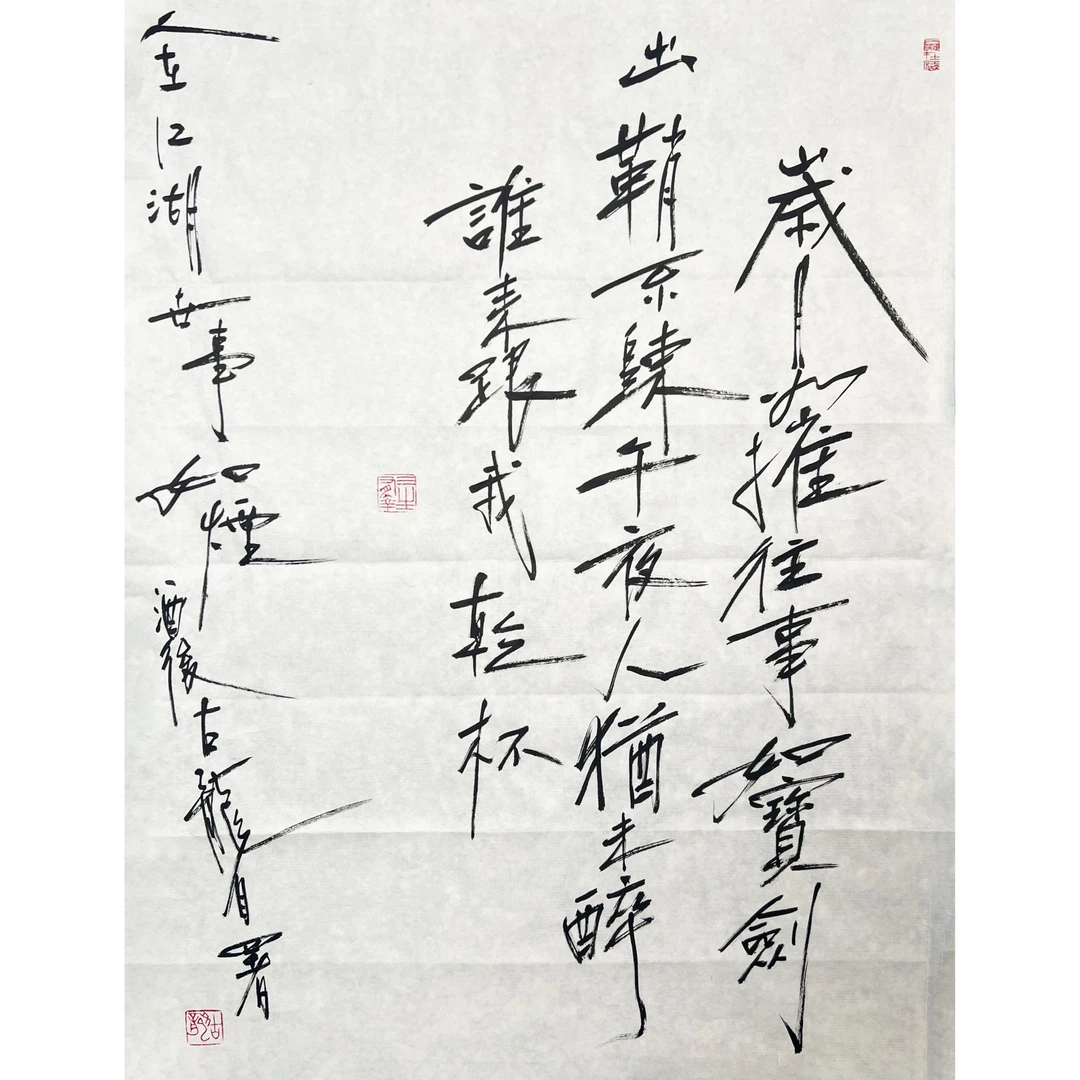 歲如摧往事如寶劍
出鞘不歸午夜人猶未醉
誰來跟我乾杯
人在江湖世事如煙酒後古龍自署
古龍